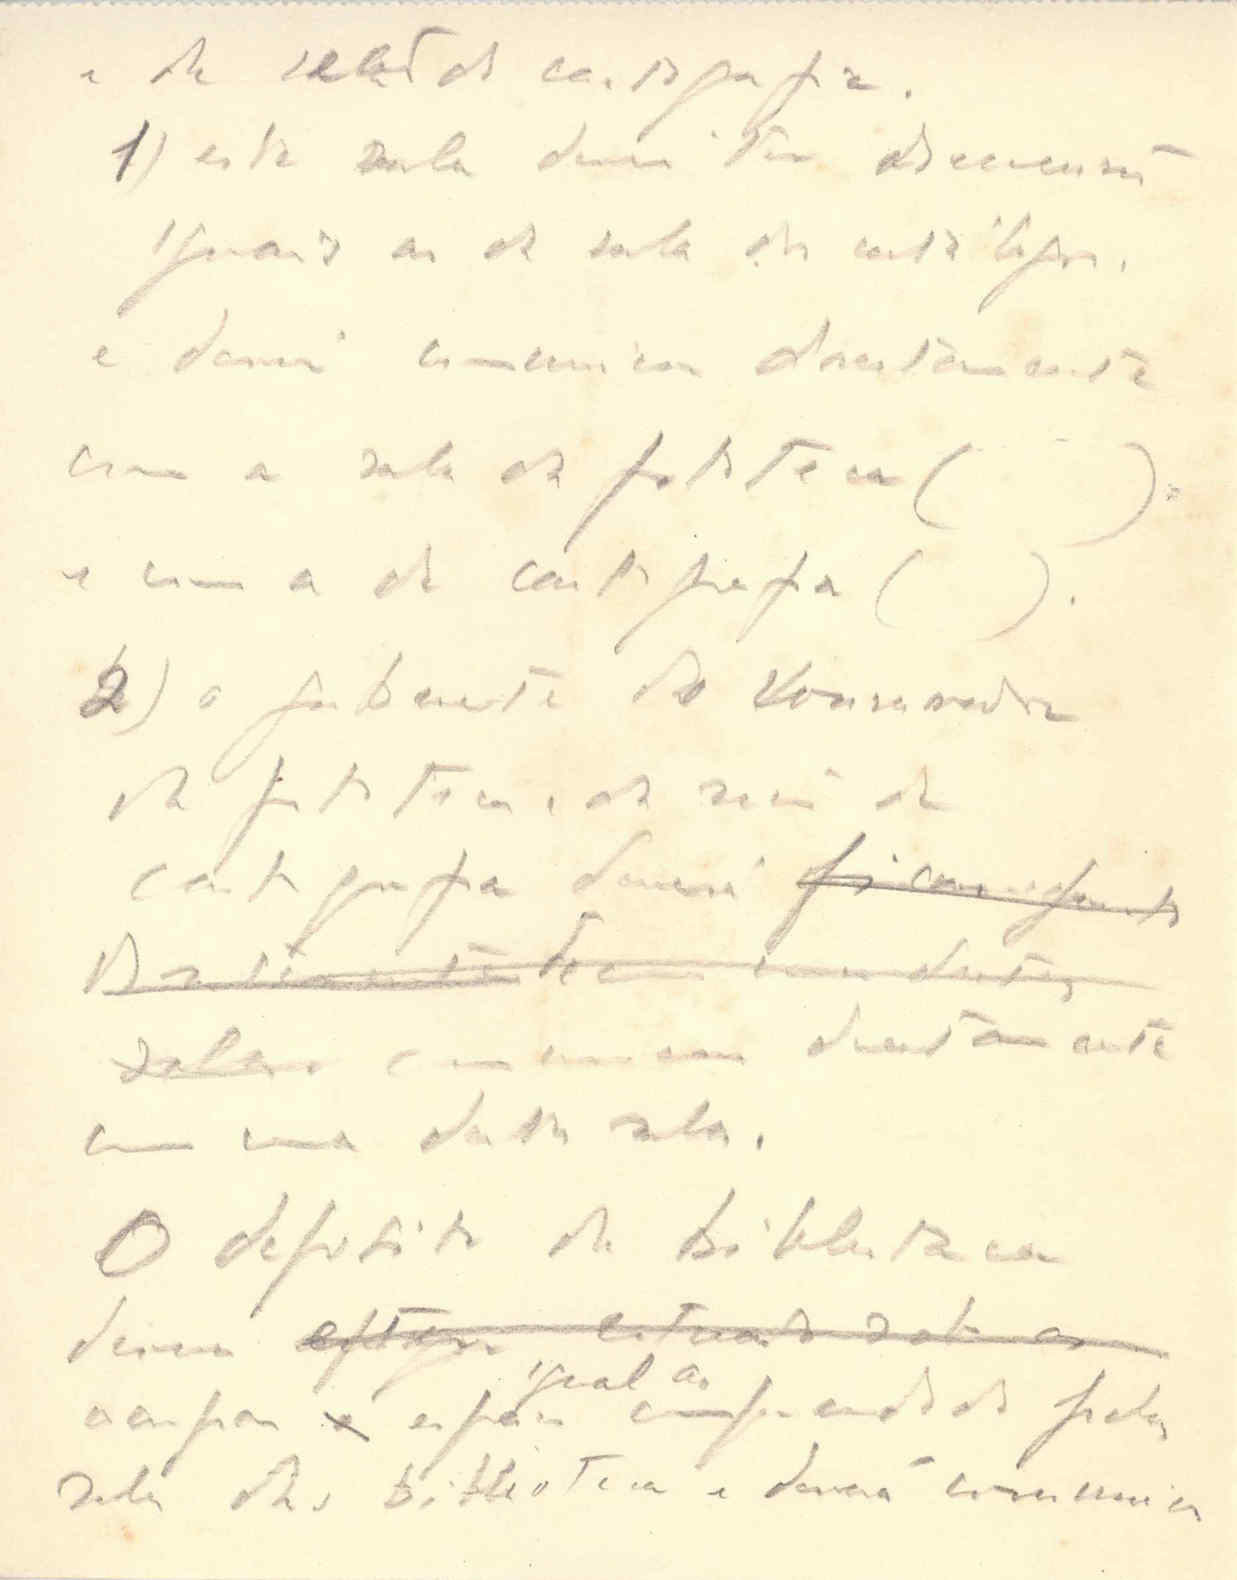 e da secção de cartografia.
1) esta sala deverá ter dimensões
iguais às da sala de catálogos.
e deverá comunicar directamente
com a sala da fototeca ( ).
e com a de cartografia ( ).
2) o gabinete do conservador
da fototeca e da secção de
cartografia deverá
comunicar directamente
com uma destas salas.
O depósito da biblioteca
deverá
ocupar espaço igual ao compreendido pelas
salas da biblioteca e deverá comunicar